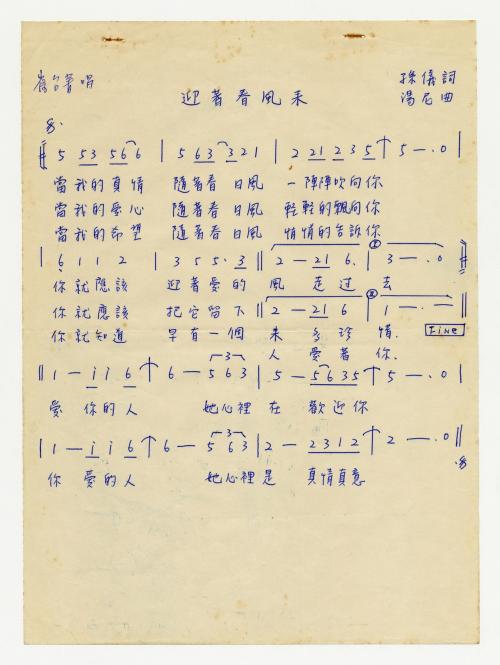 崔苔菁唱 孫儀詞
迎著春風來 湯尼曲
5 53 566 | 563 321 | 2 21 235 | 5 — . 0 |
當我的真情 隨著春日風 一陣陣吹向你
當我的愛心 隨著春日風 輕輕的飄向你
當我的希望 隨著春日風 悄悄的告訴你
| 6 1 1 2 | 3 5 5 . 3 || 2 — 21 6 . | 3 — . 0
你就應該 迎著愛的 風 走过 去
你就應該 把它留下 || 2 — 21 6 | 1 — . —
你就知道 早有一個 來 多珍 惜. Fine
人 愛著 你.
|| 1 — i i 6 | 6 — 5 63 | 5 — 5635 | 5 — . 0 |
愛 你的人 她心裡 在 歡迎你
| 1 — i i 6 | 6 — 5 63 | 2 — 2312 | 2 — . 0 ||
你 愛的人 她心裡是 真情真意